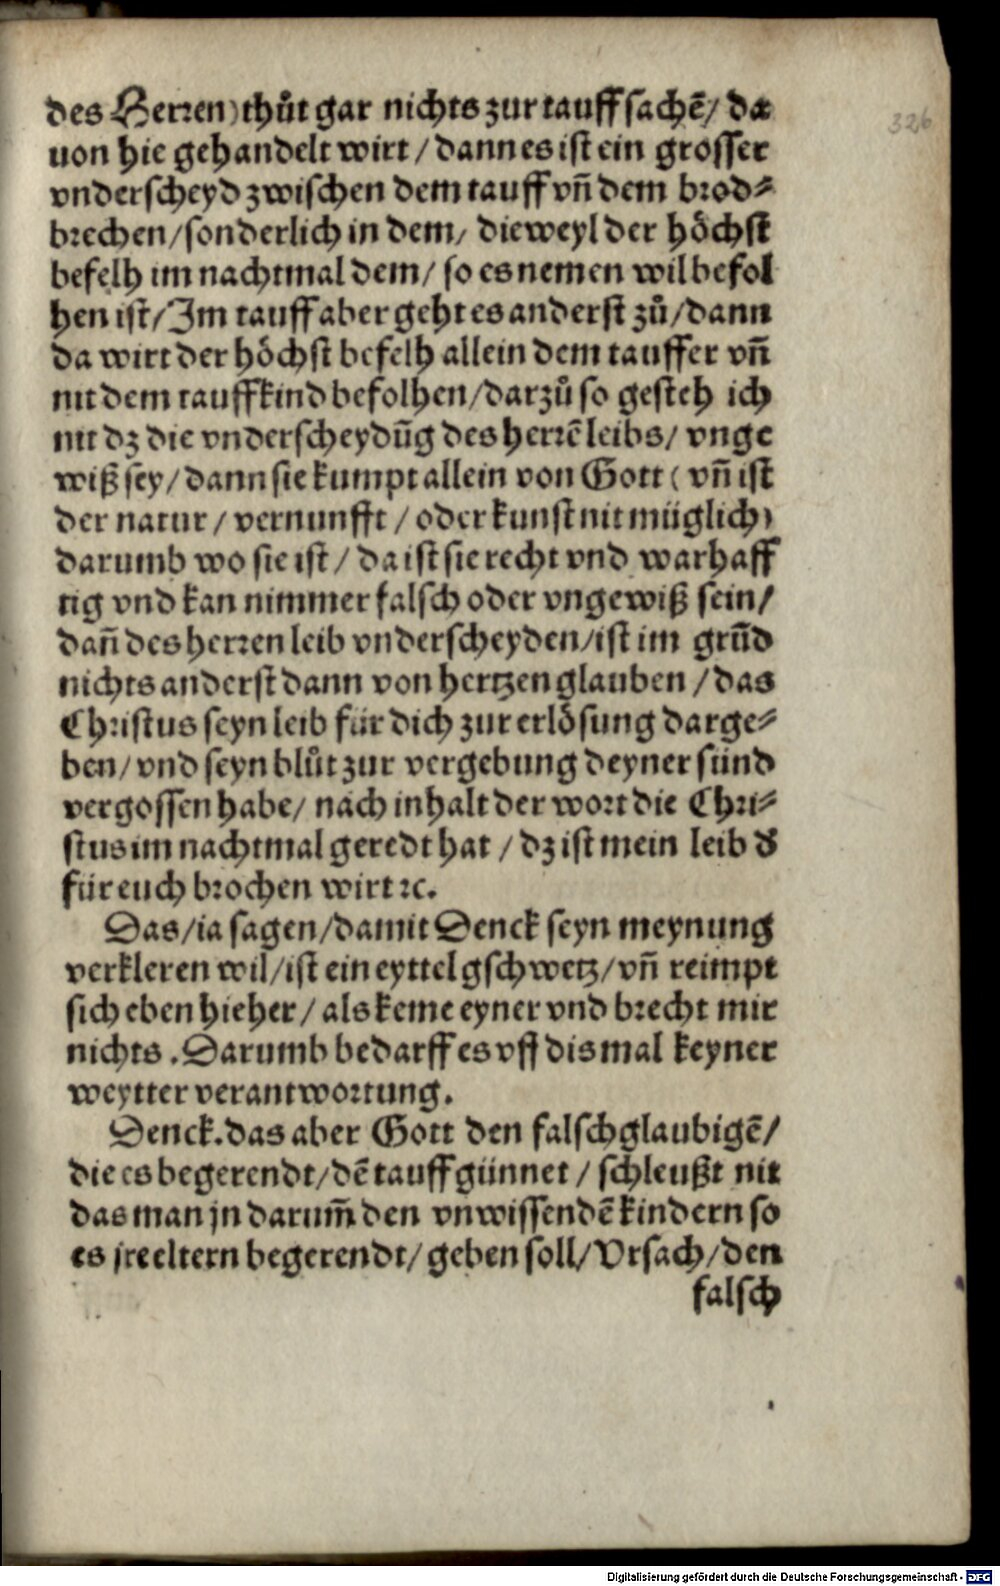 des Herren) thůt gar nichts zur tauff sachē / da
uon hie gehandelt wirt / dann es ist ein grosser
vnderscheyd zwischen dem tauff vn̄ dem brod-
brechen / sonderlich in dem / dieweyl der höchst
befelh im nachtmal dem / so es nemen wil befol
hen ist / Im tauff aber geht es anderst zů / dann
da wirt der höchst befelh allein dem tauffer vn̄
nit dem tauffkind befolhen / darzů so gesteh ich
nit dz die vnderscheydūg des herrē leibs / vnge
wiß sey / dann sie kumpt allein von Gott ( vn̄ ist
der natur / vernunfft / oder kunst nit müglich)
darumb wo sie ist / da ist sie recht vnd warhaff
tig vnd kan nimmer falsch oder vngewiß sein /
dan̄ des herren leib vnderscheyden / ist im grūd
nichts anderst dann von hertzen glauben / das
Christus seyn leib für dich zur erlösung darge-
ben / vnd seyn blůt zur vergebung deyner sünd
vergossen habe / nach inhalt der wort die Chri-
stus im nachtmal geredt hat / dz ist mein leib d̕
für euch brochen wirt ꝛc.
Das / ia sagen / damit Denck seyn meynung
verkleren wil / ist ein eyttel gschwetz / vn̄ reimpt
sich eben hieher / als keme eyner vnd brecht mir
nichts . Darumb bedarff es vff dis mal keyner
weytter verantwortung.
Denck. das aber Gott den falschglaubigē /
die es begerendt / dē tauff günnet / schleußt nit
das man jn darum̄ den vnwissendē kindern so
es jre eltern begerendt / geben soll / Vrsach / den
falsch
326
Digitalisierung gefördert durch die Deutsche Forschungsgemeinschaft - DFG